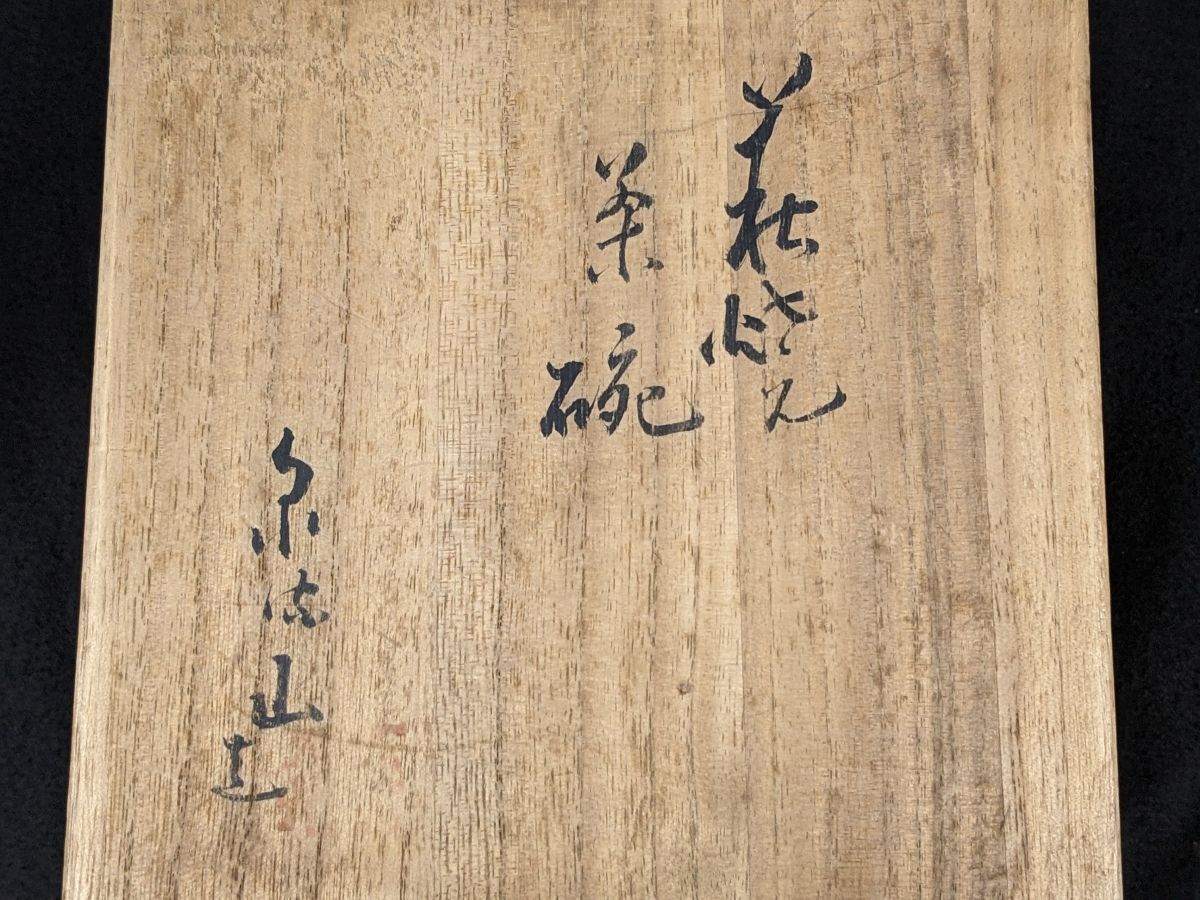 萩焼
茶碗
泉流山造